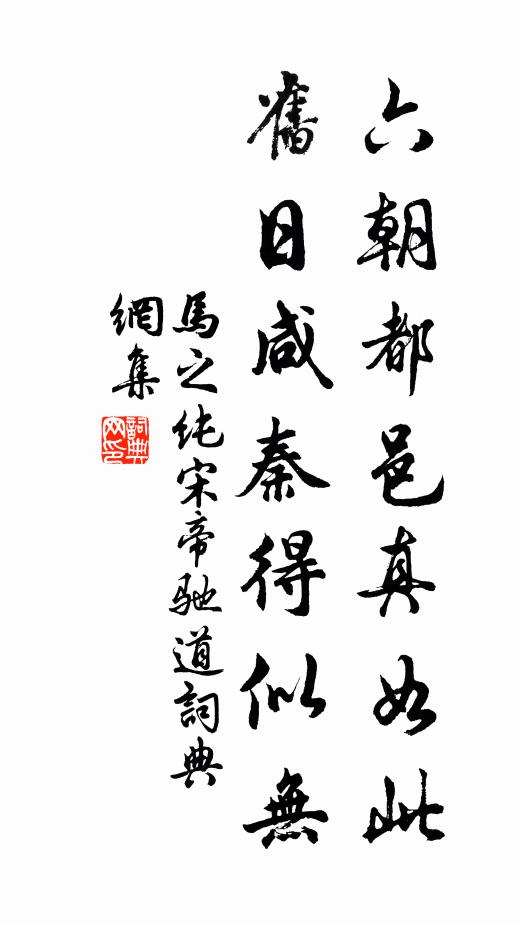 六朝都邑真如此
舊日咸秦得似無
馬之純宋帝馳道詞典
網集
詞典
网印